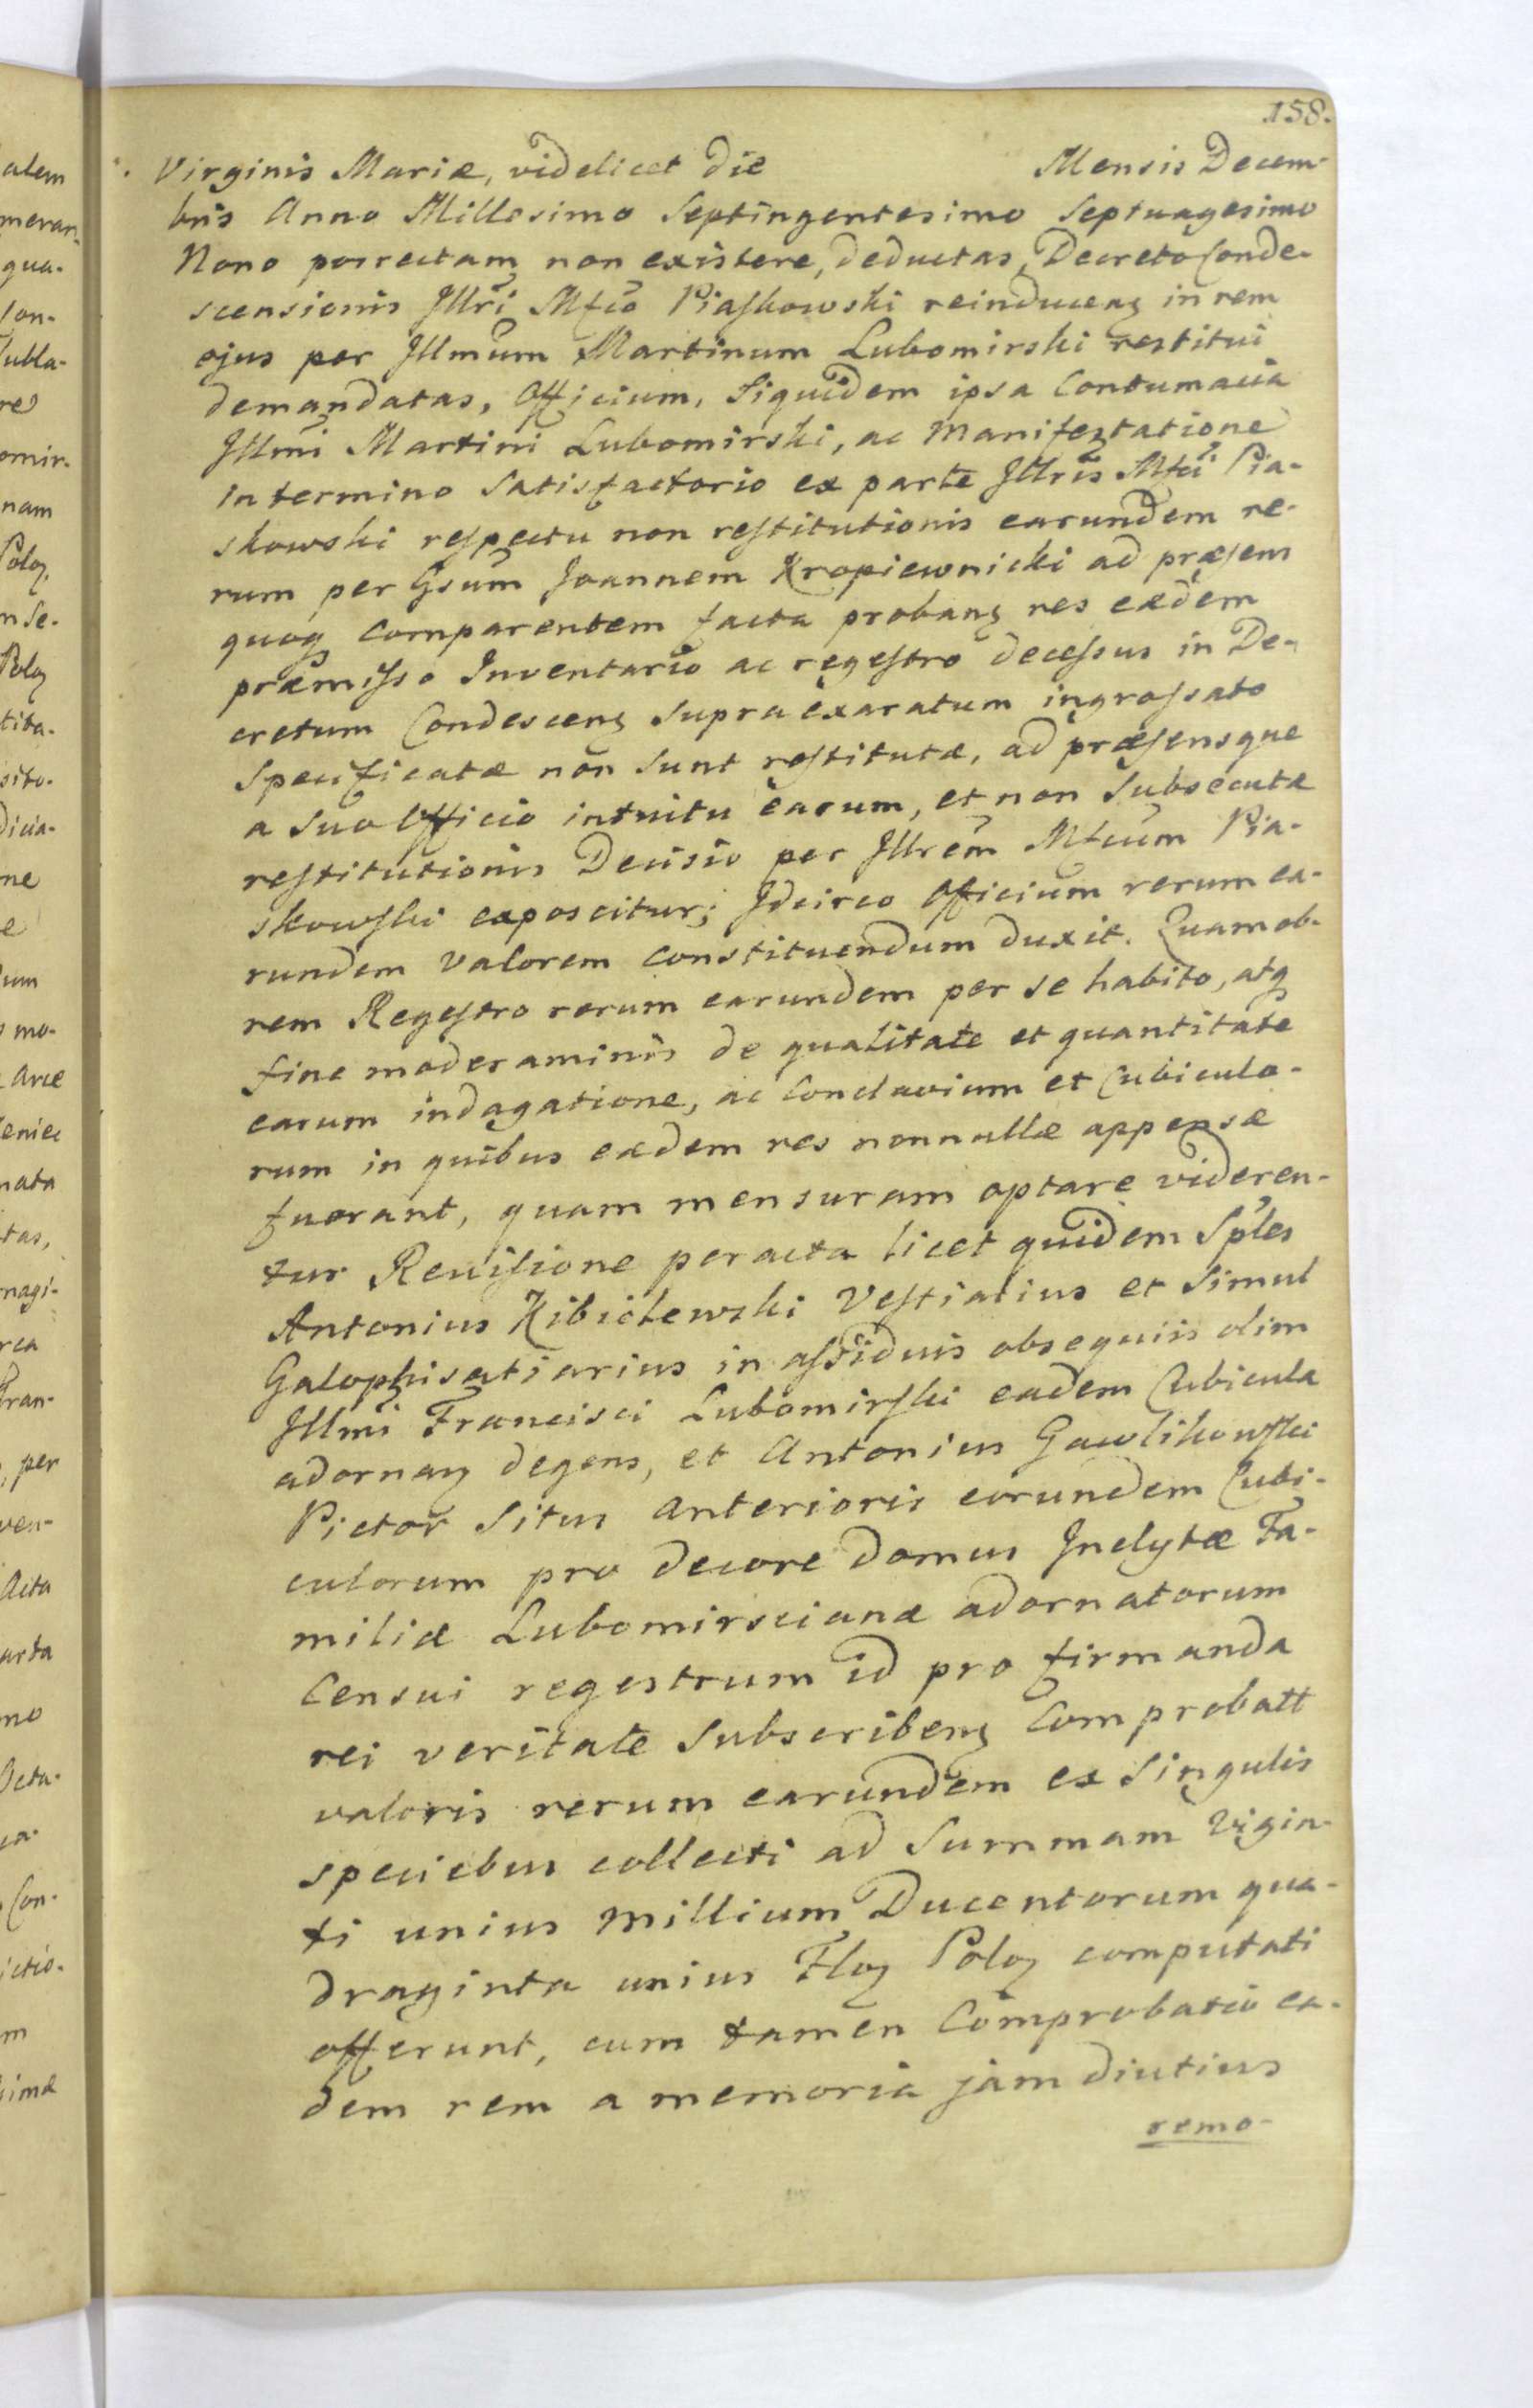 158.
Virginis Mariæ, videlicet die Mensis Decem-
bris Anno Millesimo Septingentesimo Septuagesimo
Nono porrectam non existere, deductas, Decreto Conde-
scensionis Jllri Mfco Piaskowski reinducenʒ in rem
ejus per Jllmum Martinum Lubomirski restitui
demandatas, Officium, Siquidem ipsa Contumacia
Jllmi Martini Lubomirski, ac Manifestatione
in termino Satisfactorio ex parte Jllris Mfci Pia-
skowski respectu non restitutionis earundem re-
rum per Gsum Joannem Kropiewnicki ad præsens
quoqʒ comparentem facta probanʒ res eædem
præmisso Inventario ac regestro decessus in De-
cretum Condescenʒ supra exaratum ingrossato
Specificatæ non sunt restitutæ, ad præsensque
a suo Officio intuitu earum, et non subsecutæ
restitutionis Decisio per Jllrem Mfcum Pia-
skowski exposcitur; Jdcirco Officium rerum ea-
rundem valorem constituendum duxit. Quamob-
rem Regestro rerum earundem per se habito, atqʒ
fine moderaminis de qualitate et quantitate
earum indagatione, ac Conclavium et Cubiculo-
rum in quibus eædem res nonnullæ appensæ
fuerant, quam mensuram optare videren-
tur Revisione peracta licet quidem Sples
Antonius Kibichewski Vestiarius et Simul
Galophisatiarius in assiduis obsequiis olim
Jllmi Francisci Lubomirski eadem Cubicula
adornanʒ degens, et Antonius Gawlikowski
Pictor Situs anterioris eorundem Cubi-
culorum pro decore domus Jnclytæ Fa-
miliæ Lubomirscianæ adornatorum
Censui regestrum id pro firmanda
rei veritate Subscribenʒ Comprobatt
valoris rerum earundem ex Singulis
speciebus collecti ad Summam Vigin-
ti unius Millium Ducentorum qua-
draginta unius Floʒ Poloʒ computati
offerunt, cum tamen Comprobatio ea-
dem rem a memoria jam diutius
remo-